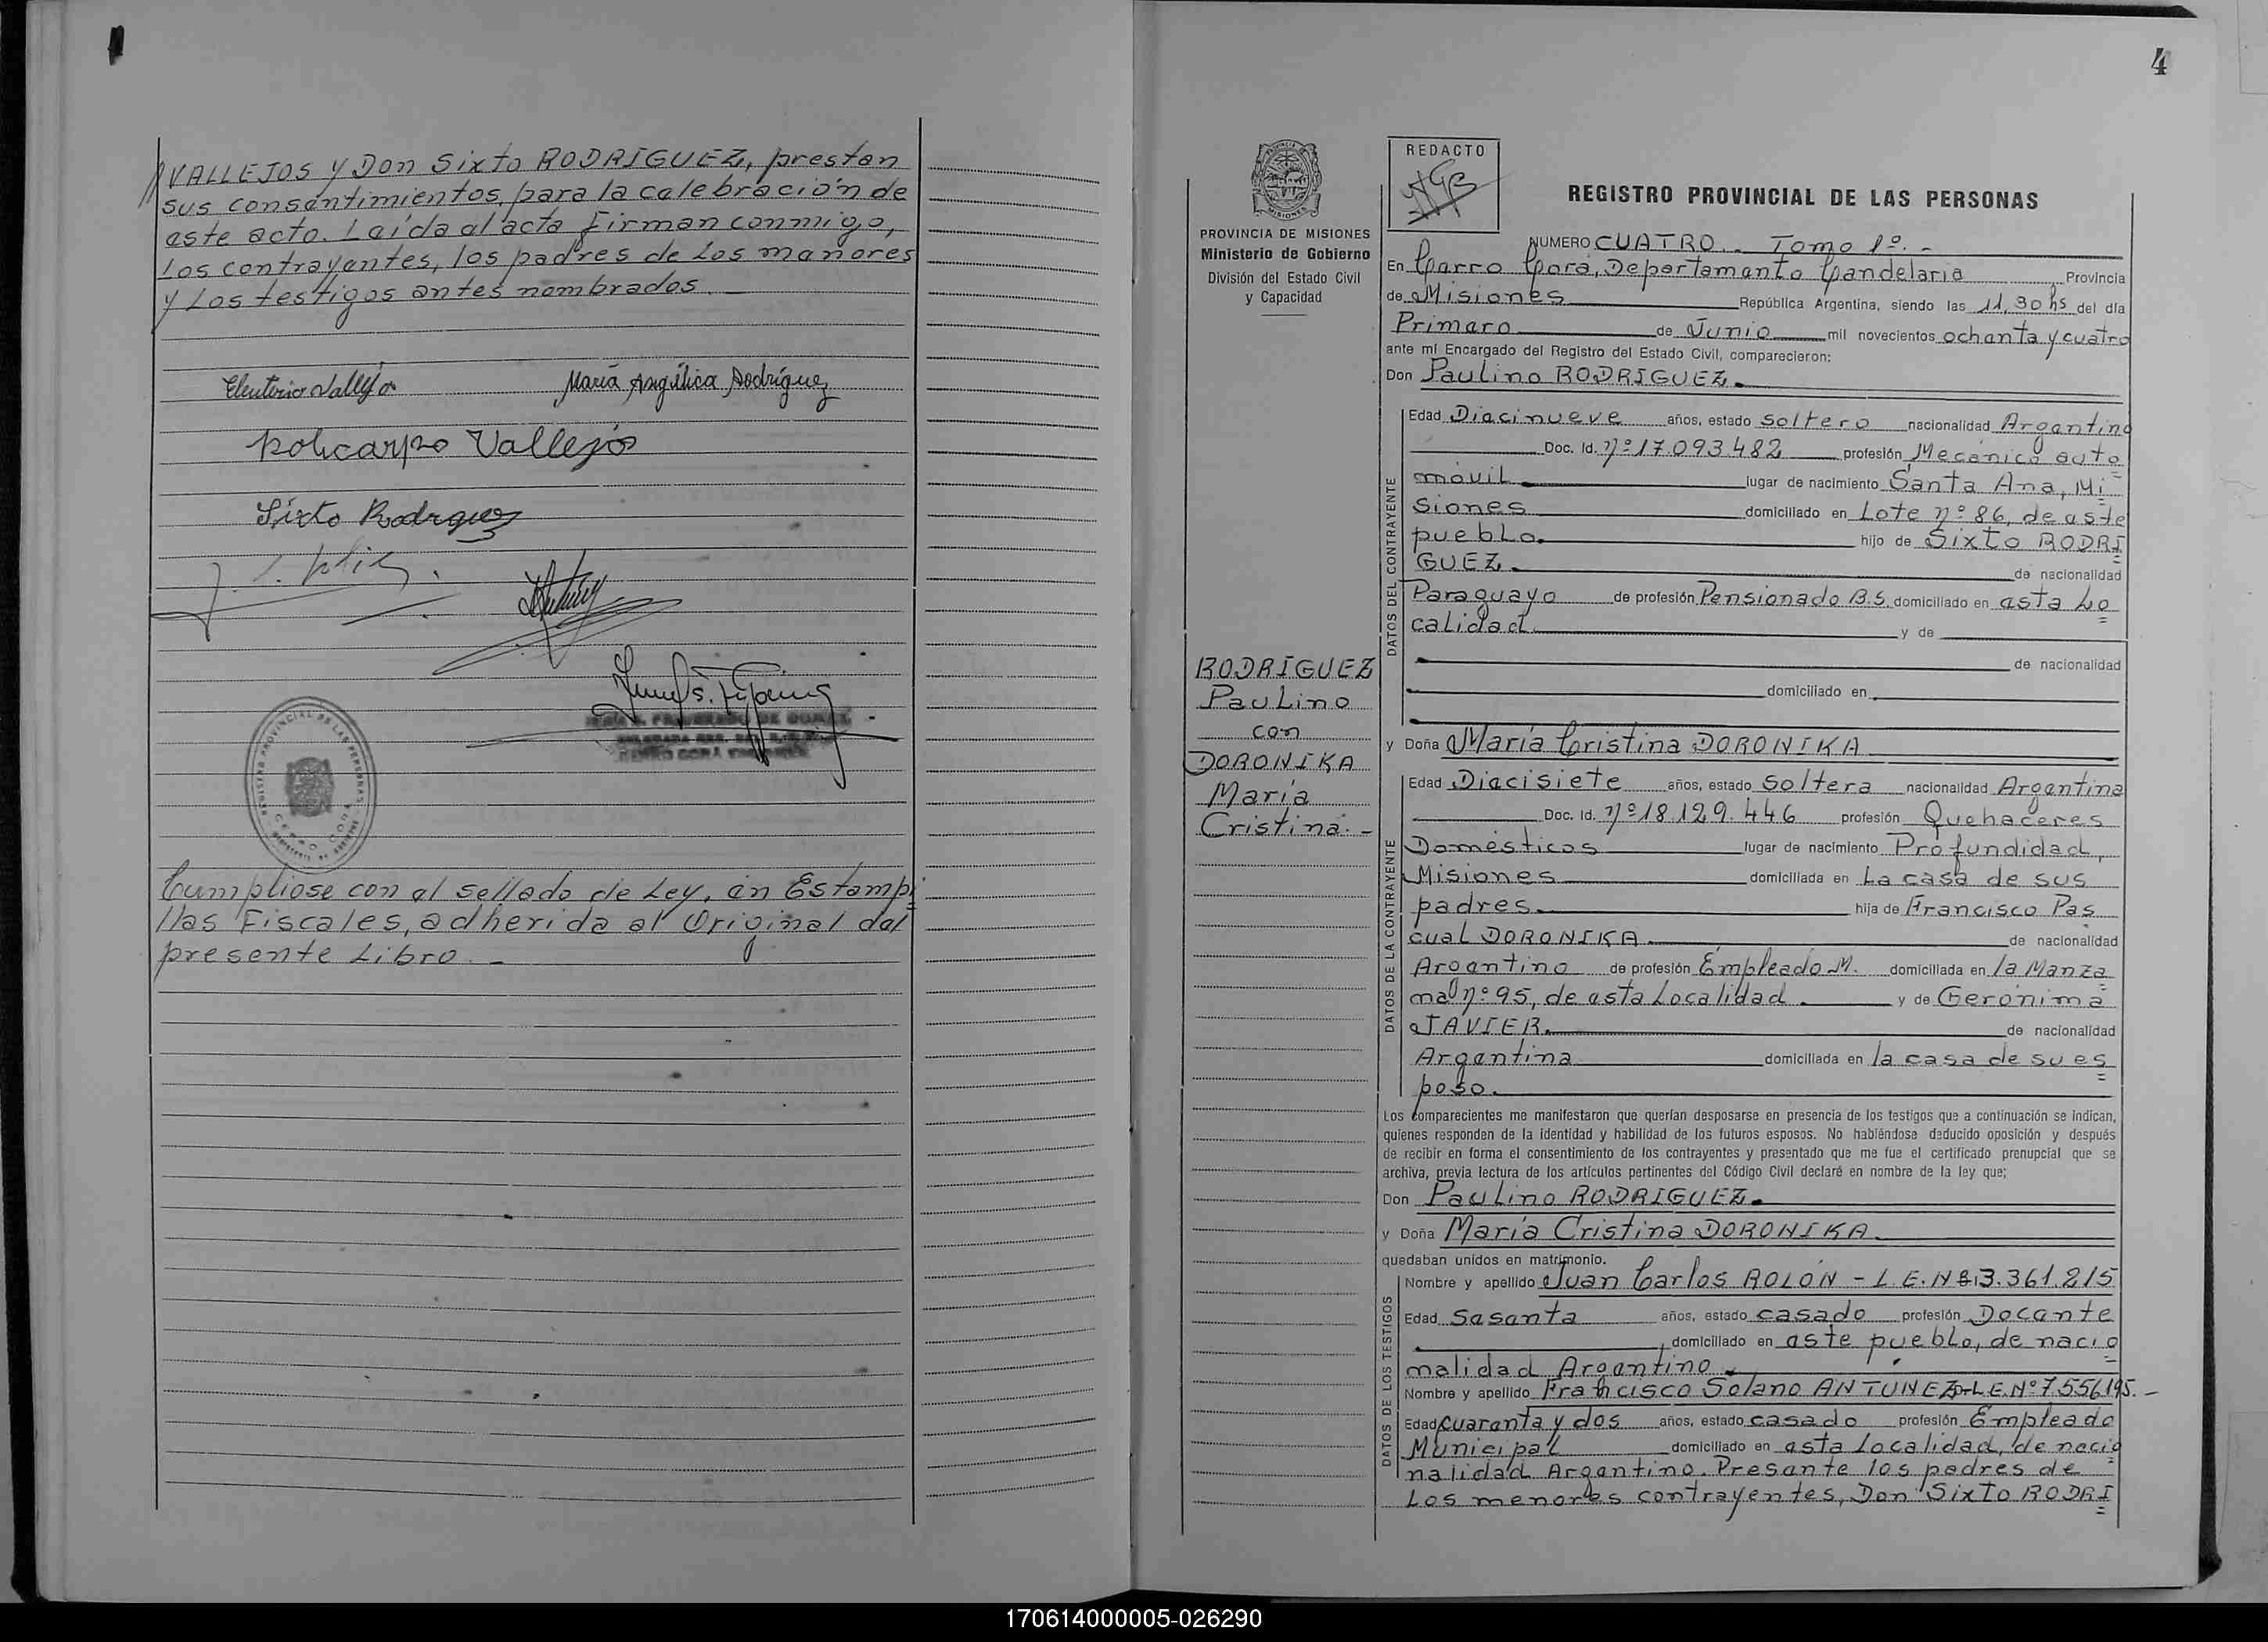 VALLEJOS y Don Sixto RODRIGUEZ, prestan
sus consentimientos, para la celebración de
este acto. Leída el acta firman conmigo,
los contrayentes, los padres de los menores
y los testigos antes nombrados.
Eleuterio Vallejo
María Angélica Rodríguez
Policarpo Vallejos
Sixto Rodriguez
REGISTRO PROVINCIAL DE LAS PERSONAS
CERRO CORÁ
Cumpliose con el sellado de Ley, en Estampi
llas Fiscales, adherida al Original del
presente Libro. -
4
PROVINCIA DE MISIONES
Ministerio de Gobierno
División del Estado Civil
y Capacidad
RODRÍGUEZ
Paulino
con
DORONIKA
María
Cristina. -
REDACTO
REGISTRO PROVINCIAL DE LAS PERSONAS
NUMERO CUATRO.- Tomo 1º. -
En Cerro Corá, Departamento Candelaria Provincia
de Misiones República Argentina, siendo las 11,30 hs del día
Primero de Junio mil novecientos ochenta y cuatro
ante mí Encargado del Registro del Estado Civil, comparecieron:
Don Paulino RODRIGUEZ.
DATOS DEL CONTRAYENTE
Edad Diecinueve años, estado soltero nacionalidad Argentino
Doc. Id. Nº 17.093.482 profesión Mecánico auto
móvil lugar de nacimiento Santa Ana, Mi
siones domiciliado en Lote Nº 86, de este
pueblo. hijo de Sixto RODRI
GUEZ. de nacionalidad
Paraguayo de profesión Pensionado B.S. domiciliado en esta Lo
calidad. y de
de nacionalidad
domiciliado en
y Doña María Cristina DORONIKA
DATOS DE LA CONTRAYENTE
Edad Diecisiete años, estado soltera nacionalidad Argentina
Doc. Id. Nº 18.129.446 profesión Quehaceres
Domésticos lugar de nacimiento Profundidad,
Misiones domiciliada en La casa de sus
padres. hija de Francisco Pas
cual DORONIKA. de nacionalidad
Argentino de profesión Empleado M. domiciliada en la Manza
na Nº 95, de esta Localidad. y de Gerónima
JAVIER. de nacionalidad
Argentina domiciliada en la casa de su es
poso.
Los comparecientes me manifestaron que querían desposarse en presencia de los testigos que a continuación se indican,
quienes responden de la identidad y habilidad de los futuros esposos. No habiéndose deducido oposición y después
de recibir en forma el consentimiento de los contrayentes y presentado que me fue el certificado prenupcial que se
archiva, previa lectura de los artículos pertinentes del Código Civil declaré en nombre de la ley que;
Don Paulino RODRIGUEZ.
y Doña María Cristina DORONIKA.
quedaban unidos en matrimonio.
DATOS DE LOS TESTIGOS
Nombre y apellido Juan Carlos ROLÓN - L.E. Nº 3.361.215
Edad Sesenta años, estado casado profesión Docente
domiciliado en este pueblo, de nacio
nalidad Argentino.
Nombre y apellido Francisco Solano ANTUNEZ - L.E. Nº 7.556.195. -
Edad cuarenta y dos años, estado casado profesión Empleado
Municipal domiciliado en esta Localidad, de nacio
nalidad Argentino. Presente los padres de
Los menores contrayentes, Don Sixto RODRI
170614000005-026290